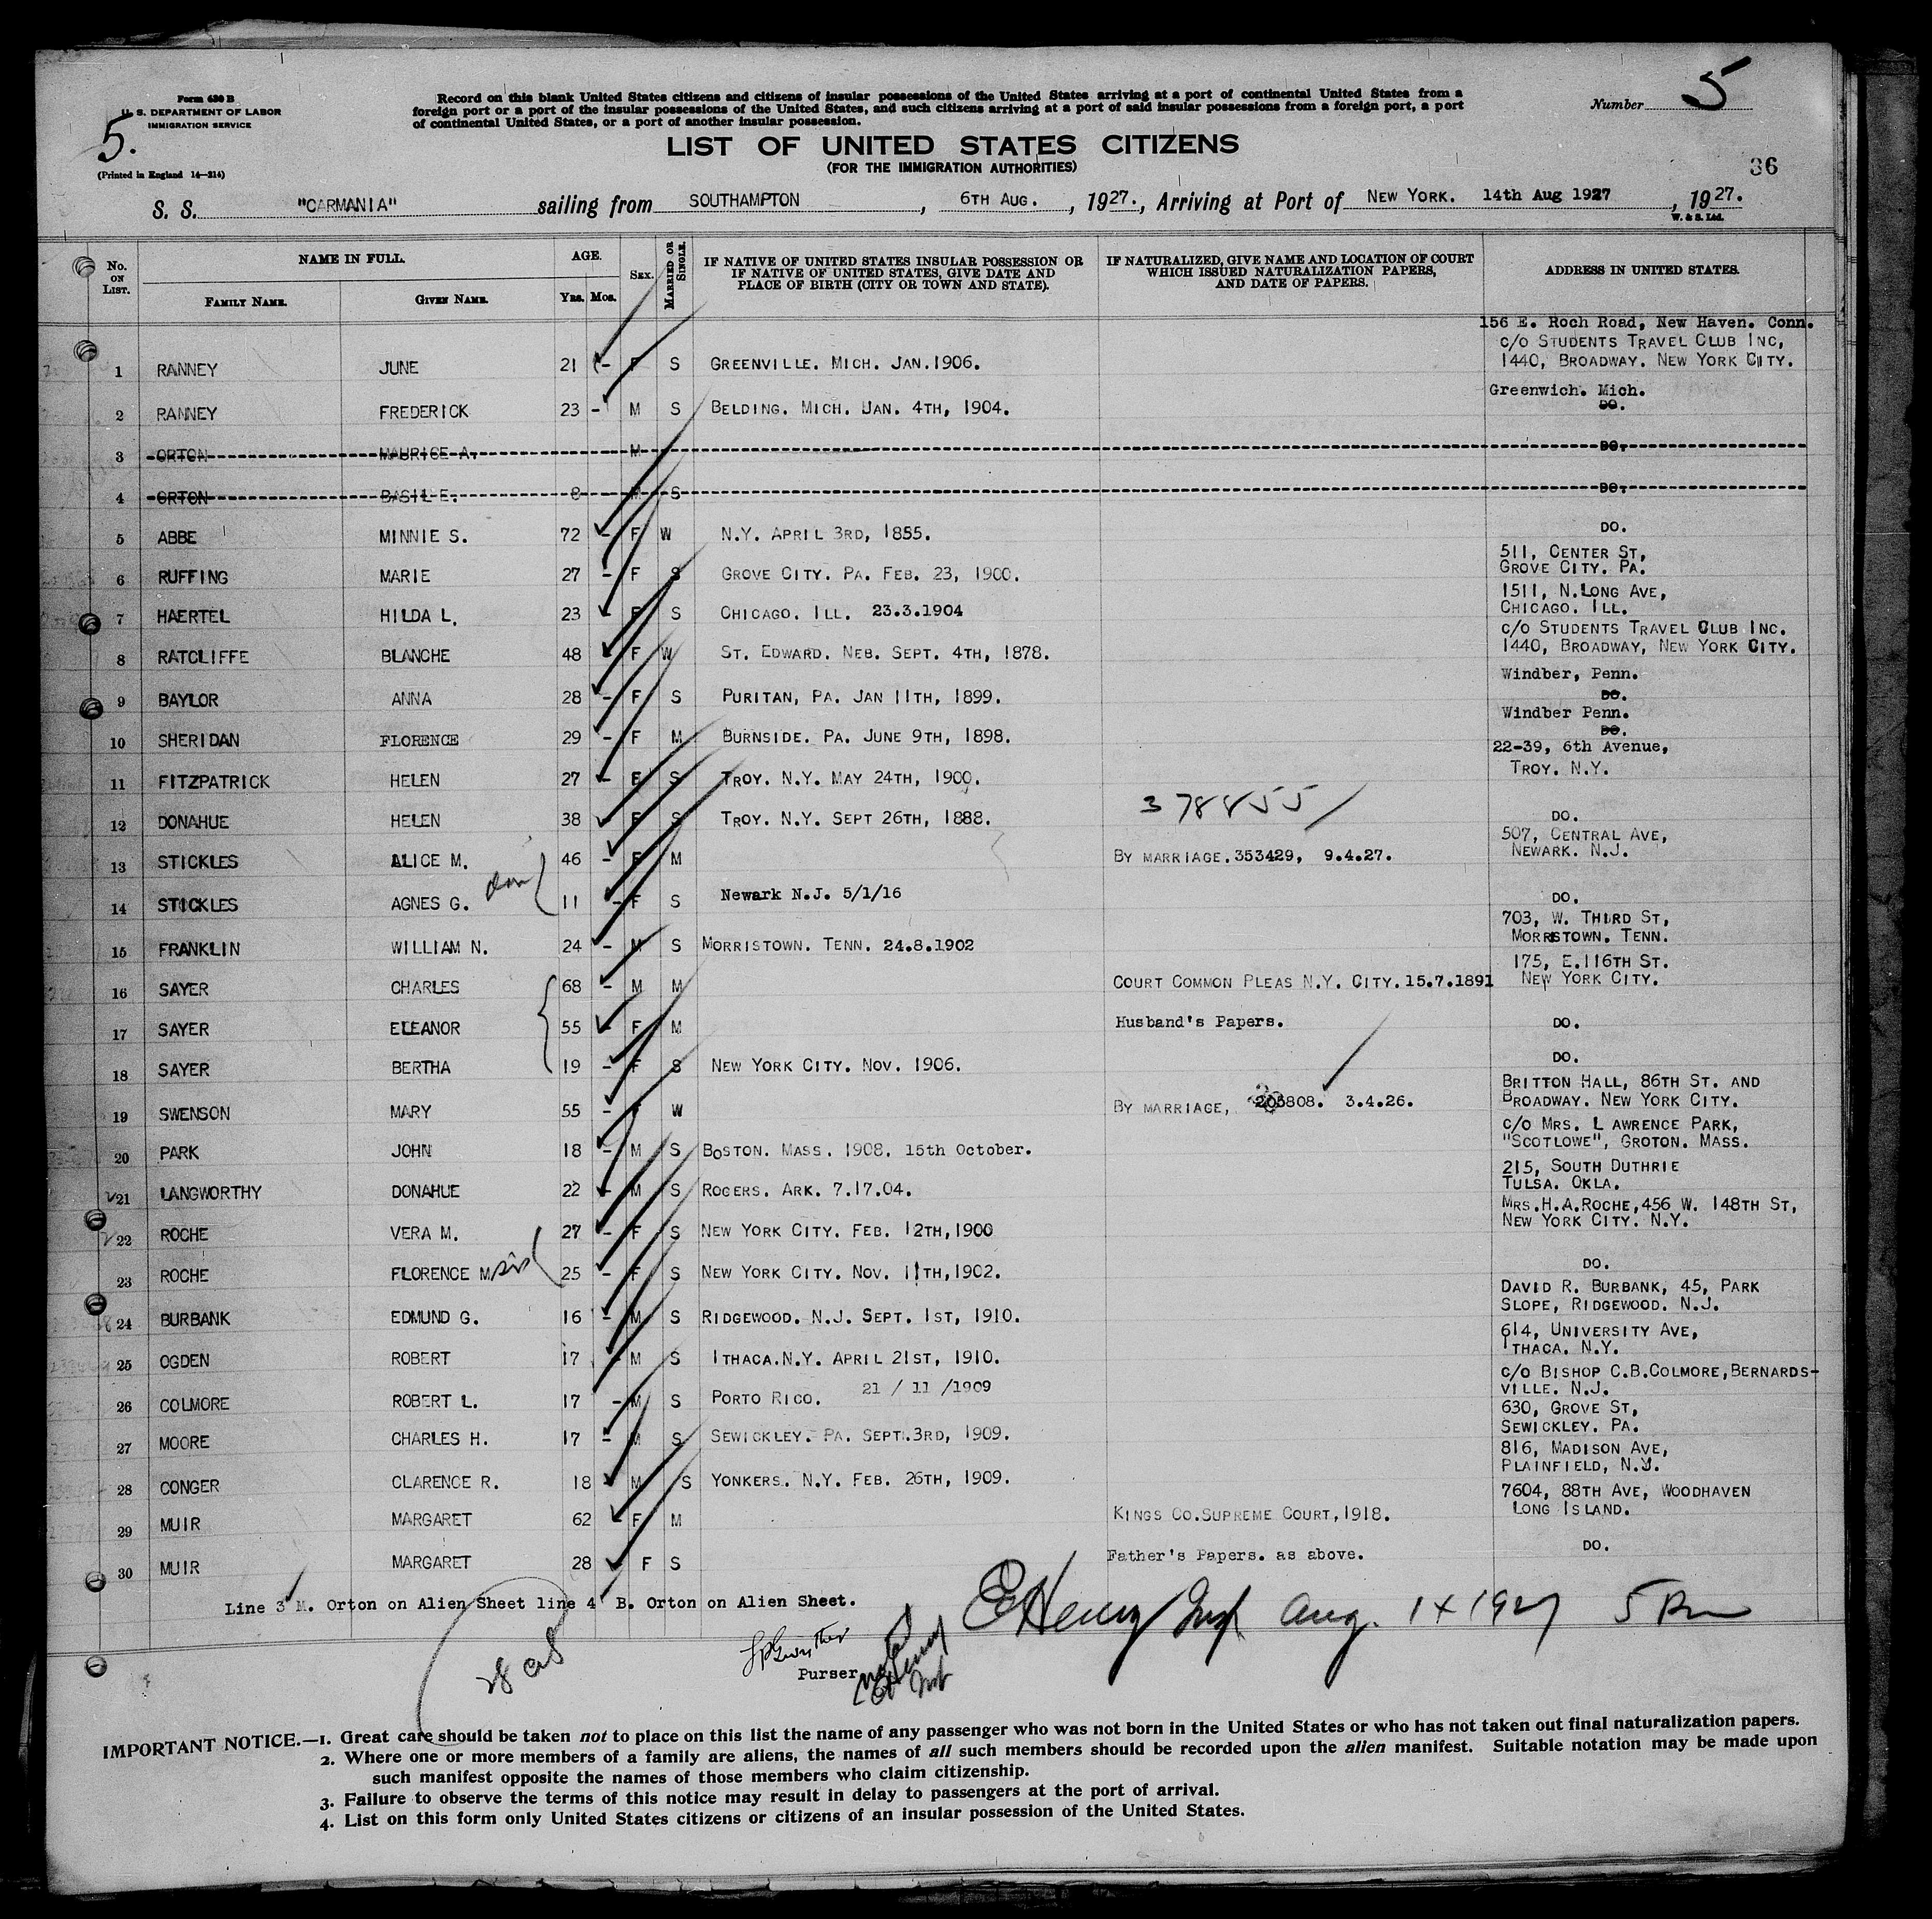 Form 630 B
U. S. DEPARTMENT OF LABOR
IMMIGRATION SERVICE
5.
(Printed in England 14—214)
Record on this blank United States citizens and citizens of insular possessions of the United States arriving at a port of continental United States from a
foreign port or a port of the insular possessions of the United States, and such citizens arriving at a port of said insular possessions from a foreign port, a port
of continental United States, or a port of another insular possession.
LIST OF UNITED STATES CITIZENS
(FOR THE IMMIGRATION AUTHORITIES)
Number 5
36
S. S. "CARMANIA" sailing from SOUTHAMPTON, 6TH AUG., 1927., Arriving at Port of NEW YORK. 14th Aug 1927, 1927.
W. & S. Ltd.
No. ON LIST. NAME IN FULL. FAMILY NAME. GIVEN NAME. AGE. YRS. MOS. SEX. MARRIED OR SINGLE.
IF NATIVE OF UNITED STATES INSULAR POSSESSION OR
IF NATIVE OF UNITED STATES, GIVE DATE AND
PLACE OF BIRTH (CITY OR TOWN AND STATE).
IF NATURALIZED, GIVE NAME AND LOCATION OF COURT
WHICH ISSUED NATURALIZATION PAPERS,
AND DATE OF PAPERS.
ADDRESS IN UNITED STATES.
156 E. Roch Road, New Haven. Conn.
C/O STUDENTS TRAVEL CLUB INC,
1 RANNEY JUNE 21 - F S GREENVILLE. MICH. JAN.1906. 1440, BROADWAY. NEW YORK CITY.
Greenwich. Mich.
2 RANNEY FREDERICK 23 - M S BELDING. MICH. JAN. 4TH, 1904. DO.
3 ORTON MAURICE A. M DO.
4 ORTON BASIL E. 8 M S DO.
5 ABBE MINNIE S. 72 - F W N.Y. APRIL 3RD, 1855. DO.
511, CENTER ST,
6 RUFFING MARIE 27 - F S GROVE CITY. PA. FEB. 23, 1900. GROVE CITY. PA.
1511, N.LONG AVE,
7 HAERTEL HILDA L. 23 - F S CHICAGO. ILL. 23.3.1904 CHICAGO. ILL.
C/O STUDENTS TRAVEL CLUB INC.
8 RATCLIFFE BLANCHE 48 - F W ST. EDWARD. NEB. SEPT. 4TH, 1878. 1440, BROADWAY, NEW YORK CITY.
Windber, Penn.
9 BAYLOR ANNA 28 - F S PURITAN, PA. JAN 11TH, 1899. DO.
Windber Penn.
10 SHERIDAN FLORENCE 29 - F M BURNSIDE. PA. JUNE 9TH, 1898. DO.
22-39, 6th Avenue,
11 FITZPATRICK HELEN 27 - F S TROY. N.Y. MAY 24TH, 1900. TROY. N.Y.
378855
12 DONAHUE HELEN 38 - F S TROY. N.Y. SEPT 26TH, 1888. DO.
507, CENTRAL AVE,
13 STICKLES ALICE M. 46 - F M BY MARRIAGE.353429, 9.4.27. NEWARK. N.J.
14 STICKLES AGNES G. 11 - F S Newark N.J. 5/1/16 DO.
703, W. THIRD ST,
15 FRANKLIN WILLIAM N. 24 - M S MORRISTOWN. TENN. 24.8.1902 MORRSTOWN. TENN.
175, E.116TH ST.
16 SAYER CHARLES 68 - M M COURT COMMON PLEAS N.Y. CITY.15.7.1891 NEW YORK CITY.
17 SAYER ELEANOR 55 - F M Husband's Papers. DO.
18 SAYER BERTHA 19 - F S NEW YORK CITY. NOV. 1906. DO.
BRITTON HALL, 86TH ST. AND
19 SWENSON MARY 55 - F W BY MARRIAGE, 203808. 3.4.26. BROADWAY. NEW YORK CITY.
C/O MRS. L AWRENCE PARK,
20 PARK JOHN 18 - M S BOSTON. MASS. 1908. 15th October. "SCOTLOWE", GROTON. MASS.
215, SOUTH DUTHRIE
21 LANGWORTHY DONAHUE 22 - M S ROGERS. ARK. 7.17.04. TULSA. OKLA.
MRS.H.A.ROCHE,456 W. 148TH ST,
22 ROCHE VERA M. 27 - F S NEW YORK CITY. FEB. 12TH,1900 NEW YORK CITY. N.Y.
23 ROCHE FLORENCE M sis 25 - F S NEW YORK CITY. NOV. 11TH,1902. DO.
DAVID R. BURBANK, 45, PARK
24 BURBANK EDMUND G. 16 - M S RIDGEWOOD. N.J. SEPT. 1ST, 1910. SLOPE, RIDGEWOOD. N.J.
614, UNIVERSITY AVE,
25 OGDEN ROBERT 17 - M S ITHACA.N.Y. APRIL 21ST, 1910. ITHACA. N.Y.
C/O BISHOP C.B.COLMORE,BERNARDS-
26 COLMORE ROBERT L. 17 - M S PORTO RICO. 21 / 11 /1909 VILLE. N.J.
630, GROVE ST,
27 MOORE CHARLES H. 17 - M S SEWICKLEY. PA. SEPT.3RD, 1909. SEWICKLEY. PA.
816, MADISON AVE,
28 CONGER CLARENCE R. 18 - M S YONKERS. N.Y. FEB. 26TH, 1909. PLAINFIELD, N.J.
7604, 88TH AVE, WOODHAVEN
29 MUIR MARGARET 62 - F M KINGS CO.SUPREME COURT,1918. LONG ISLAND.
30 MUIR MARGARET 28 - F S Father's Papers. as above. DO.
Line 3 M. Orton on Alien Sheet line 4 B. Orton on Alien Sheet.
E Henry Insp Aug. 14 1927 5 Pm
Purser
IMPORTANT NOTICE.—1. Great care should be taken not to place on this list the name of any passenger who was not born in the United States or who has not taken out final naturalization papers.
2. Where one or more members of a family are aliens, the names of all such members should be recorded upon the alien manifest. Suitable notation may be made upon
such manifest opposite the names of those members who claim citizenship.
3. Failure to observe the terms of this notice may result in delay to passengers at the port of arrival.
4. List on this form only United States citizens or citizens of an insular possession of the United States.